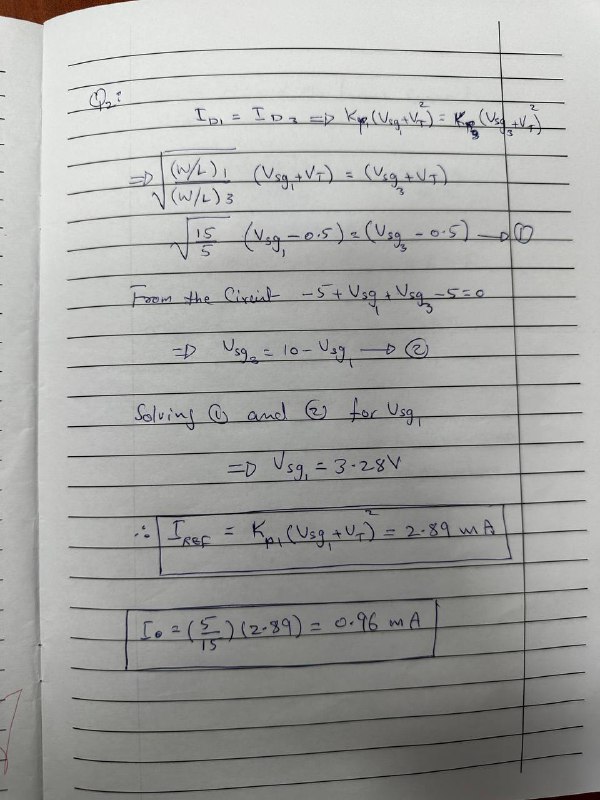 Q2:
I_D1 = I_D3 ⇒ K_p1 (V_sg1 + V_T)² = K_p3 (V_sg3 + V_T)²
⇒ √((W/L)1 / (W/L)3) (V_sg1 + V_T) = (V_sg3 + V_T)
√(15/5) (V_sg1 - 0.5) = (V_sg3 - 0.5) → ①
From the Circuit -5 + V_sg1 + V_sg3 - 5 = 0
⇒ V_sg3 = 10 - V_sg1 → ②
Solving ① and ② for V_sg1
⇒ V_sg1 = 3.28V
∴ I_REF = K_p1 (V_sg1 + V_T)² = 2.89 mA
I_o = (5/15) (2.89) = 0.96 mA